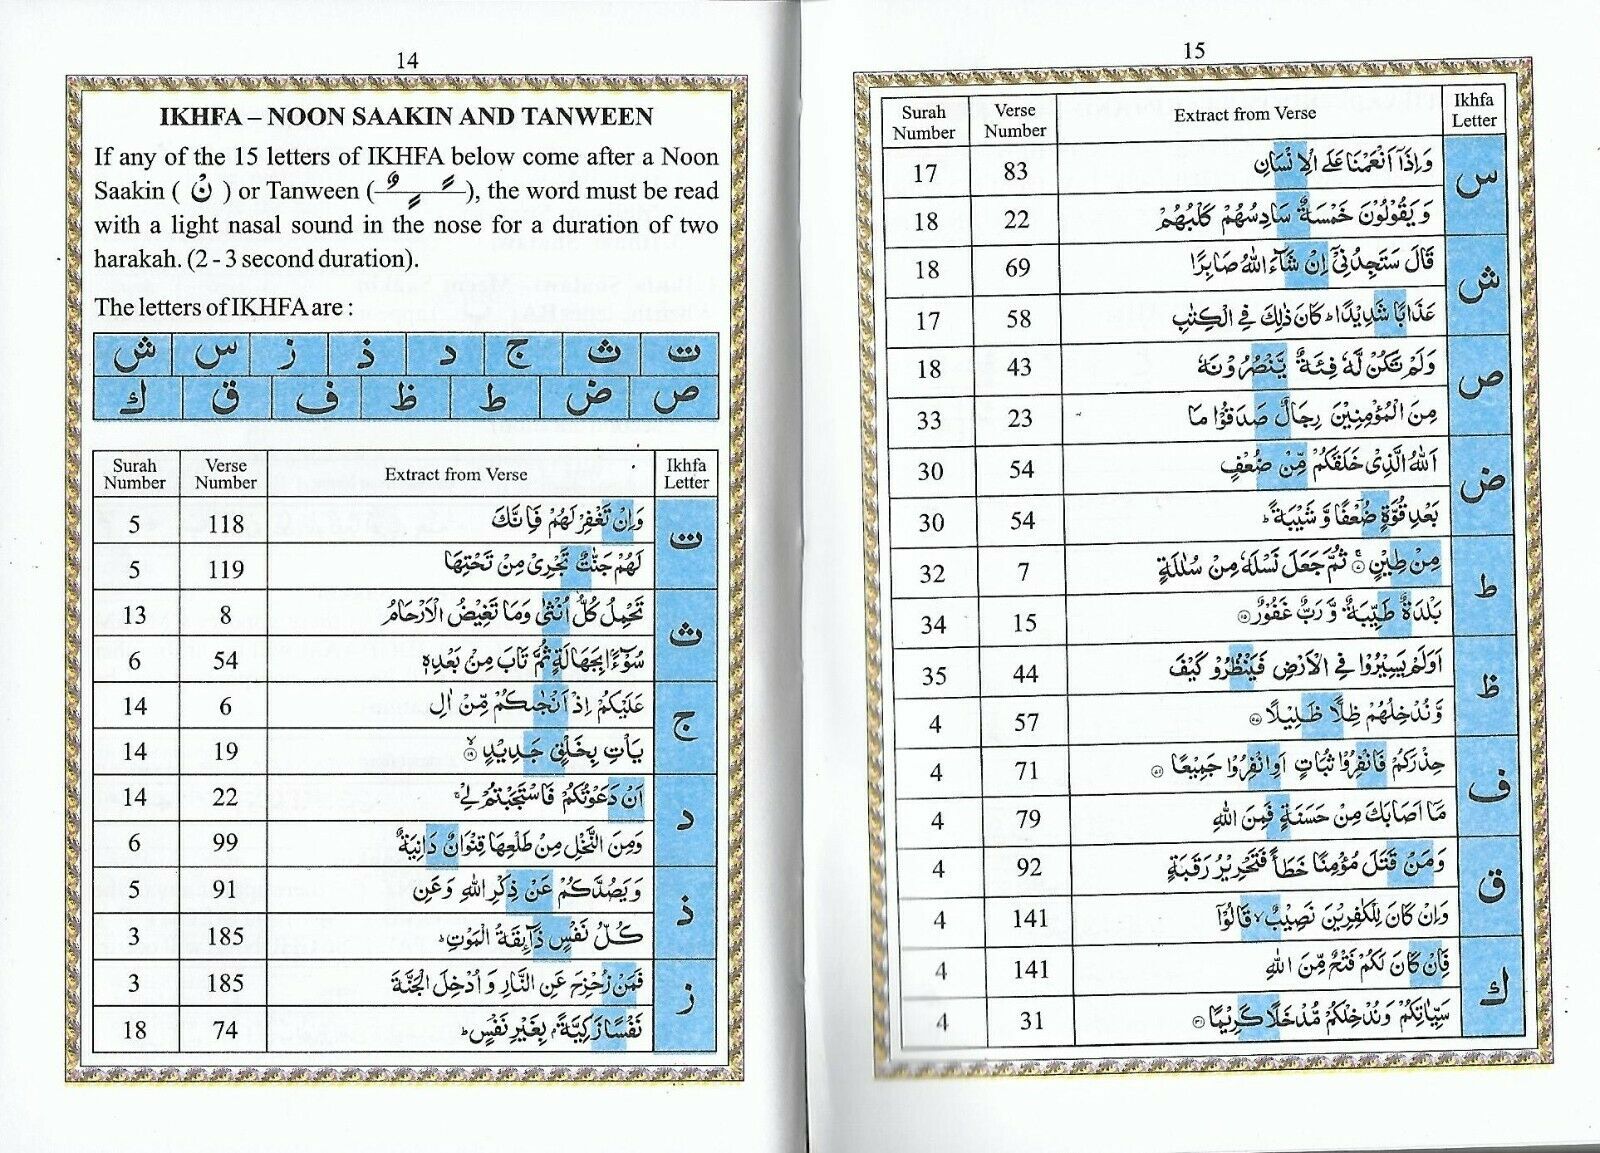 14
IKHFA – NOON SAAKIN AND TANWEEN
If any of the 15 letters of IKHFA below come after a Noon
Saakin ( نْ ) or Tanween ( ً ٍ ٌ ), the word must be read
with a light nasal sound in the nose for a duration of two
harakah. (2 - 3 second duration).
The letters of IKHFA are :
ت ث ج د ذ ز س ش
ص ض ط ظ ف ق ك
Surah Number Verse Number Extract from Verse Ikhfa Letter
5 118 وَاِنْ تَغْفِرْ لَهُمْ فَاِنَّكَ ت
5 119 لَهُمْ جَنّٰتٌ تَجْرِىْ مِنْ تَحْتِهَا
13 8 تَحْمِلُ كُلُّ اُنْثٰى وَمَا تَغِيْضُ الْاَرْحَامُ ث
6 54 سُوْٓءًۢا بِجَهَالَةٍ ثُمَّ تَابَ مِنْ بَعْدِهٖ
14 6 عَلَيْكُمْ اِذْ اَنْجٰىكُمْ مِّنْ اٰلِ ج
14 19 يَاْتِ بِخَلْقٍ جَدِيْدٍ ۙ‏ ۱۹
14 22 اَنْ دَعَوْتُكُمْ فَاسْتَجَبْتُمْ لِىْ ۚ د
6 99 وَمِنَ النَّخْلِ مِنْ طَلْعِهَا قِنْوَانٌ دَانِيَةٌ
5 91 وَيَصُدَّكُمْ عَنْ ذِكْرِ اللّٰهِ وَعَنِ ذ
3 185 كُلُّ نَفْسٍ ذَآئِقَةُ الْمَوْتِ ؕ
3 185 فَمَنْ زُحْزِحَ عَنِ النَّارِ وَاُدْخِلَ الْجَنَّةَ ز
18 74 نَفْسًا زَكِيَّةً ۢ بِغَيْرِ نَفْسٍ ؕ
15
Surah Number Verse Number Extract from Verse Ikhfa Letter
17 83 وَاِذَآ اَنْعَمْنَا عَلَى الْاِنْسَانِ س
18 22 وَيَقُوْلُوْنَ خَمْسَةٌ سَادِسُهُمْ كَلْبُهُمْ
18 69 قَالَ سَتَجِدُنِىْٓ اِنْ شَآءَ اللّٰهُ صَابِرًا ش
17 58 عَذَابًا شَدِيْدًا ؕ كَانَ ذٰلِكَ فِى الْكِتٰبِ
18 43 وَلَمْ تَكُنْ لَّهٗ فِئَةٌ يَّنْصُرُوْنَهٗ ص
33 23 مِنَ الْمُؤْمِنِيْنَ رِجَالٌ صَدَقُوْا مَا
30 54 اَللّٰهُ الَّذِىْ خَلَقَكُمْ مِّنْ ضُعْفٍ ض
30 54 بَعْدِ قُوَّةٍ ضُعْفًا وَّشَيْبَةً ؕ
32 7 مِنْ طِيْنٍ ۚ‏ ۷ ثُمَّ جَعَلَ نَسْلَهٗ مِنْ سُلٰلَةٍ ط
34 15 بَلْدَةٌ طَيِّبَةٌ وَّرَبٌّ غَفُوْرٌ ۱۵
35 44 اَوَلَمْ يَسِيْرُوْا فِى الْاَرْضِ فَيَنْظُرُوْا كَيْفَ ظ
4 57 وَّنُدْخِلُهُمْ ظِلًّا ظَلِيْلًا ۵۷
4 71 حِذْرَكُمْ فَانْفِرُوْا ثُبَاتٍ اَوِ انْفِرُوْا جَمِيْعًا ف
4 79 مَآ اَصَابَكَ مِنْ حَسَنَةٍ فَمِنَ اللّٰهِ
4 92 وَمَنْ قَتَلَ مُؤْمِنًا خَطَأً فَتَحْرِيْرُ رَقَبَةٍ ق
4 141 وَاِنْ كَانَ لِلْكٰفِرِيْنَ نَصِيْبٌ ۙ قَالُوْٓا
4 141 فَاِنْ كَانَ لَكُمْ فَتْحٌ مِّنَ اللّٰهِ ك
4 31 سَيِّاٰتِكُمْ وَنُدْخِلْكُمْ مُّدْخَلًا كَرِيْمًا ۳۱